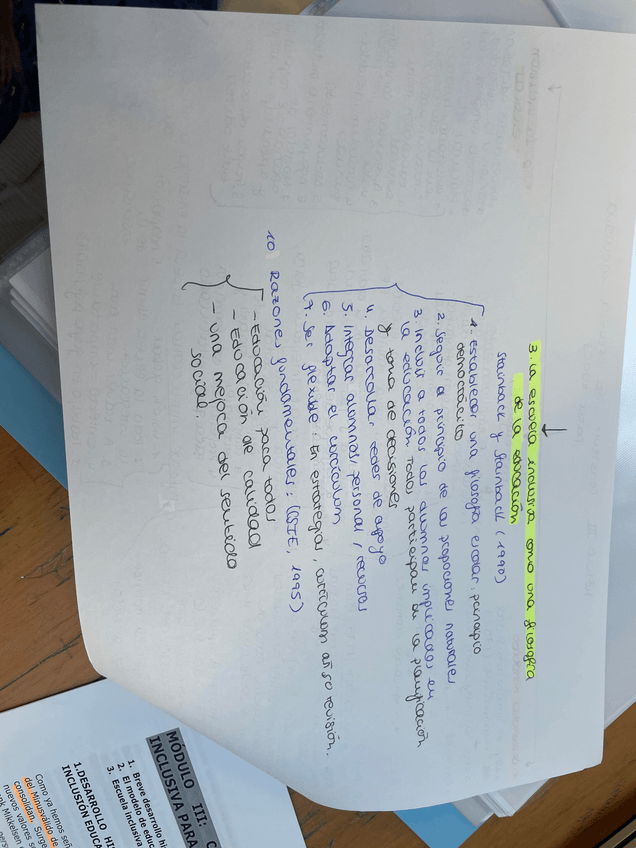 3. La escuela inclusiva como una filosofía
de la educación
Stainback y Stainback (1990)
1. Establecer una filosofía escolar, principio
democrático
2. Seguir el principio de las proporciones naturales
3. Incluir a todos los alumnos implicados en
la educación. Todos participan en la planificación
y toma de decisiones
4. Desarrollar redes de apoyo
5. Integrar alumnos, personal, recursos
6. Adaptar el curriculum
7. Ser flexible. En estrategias, curriculum
revisión.
10 Razones fundamentales: (CSIE, 1995)
- Educación para todos
- Educación de calidad
- Una mejora del sentido
social.
MÓDULO III:
INCLUSIVA PARA
1. Breve desarrollo
2. El modelo de
3. Escuela inclusiva
1.DESARROLLO
INCLUSIÓN
Como ya hemos
del Minusválido de
consolidan. Surge
nuevos valores
Mikkelsen